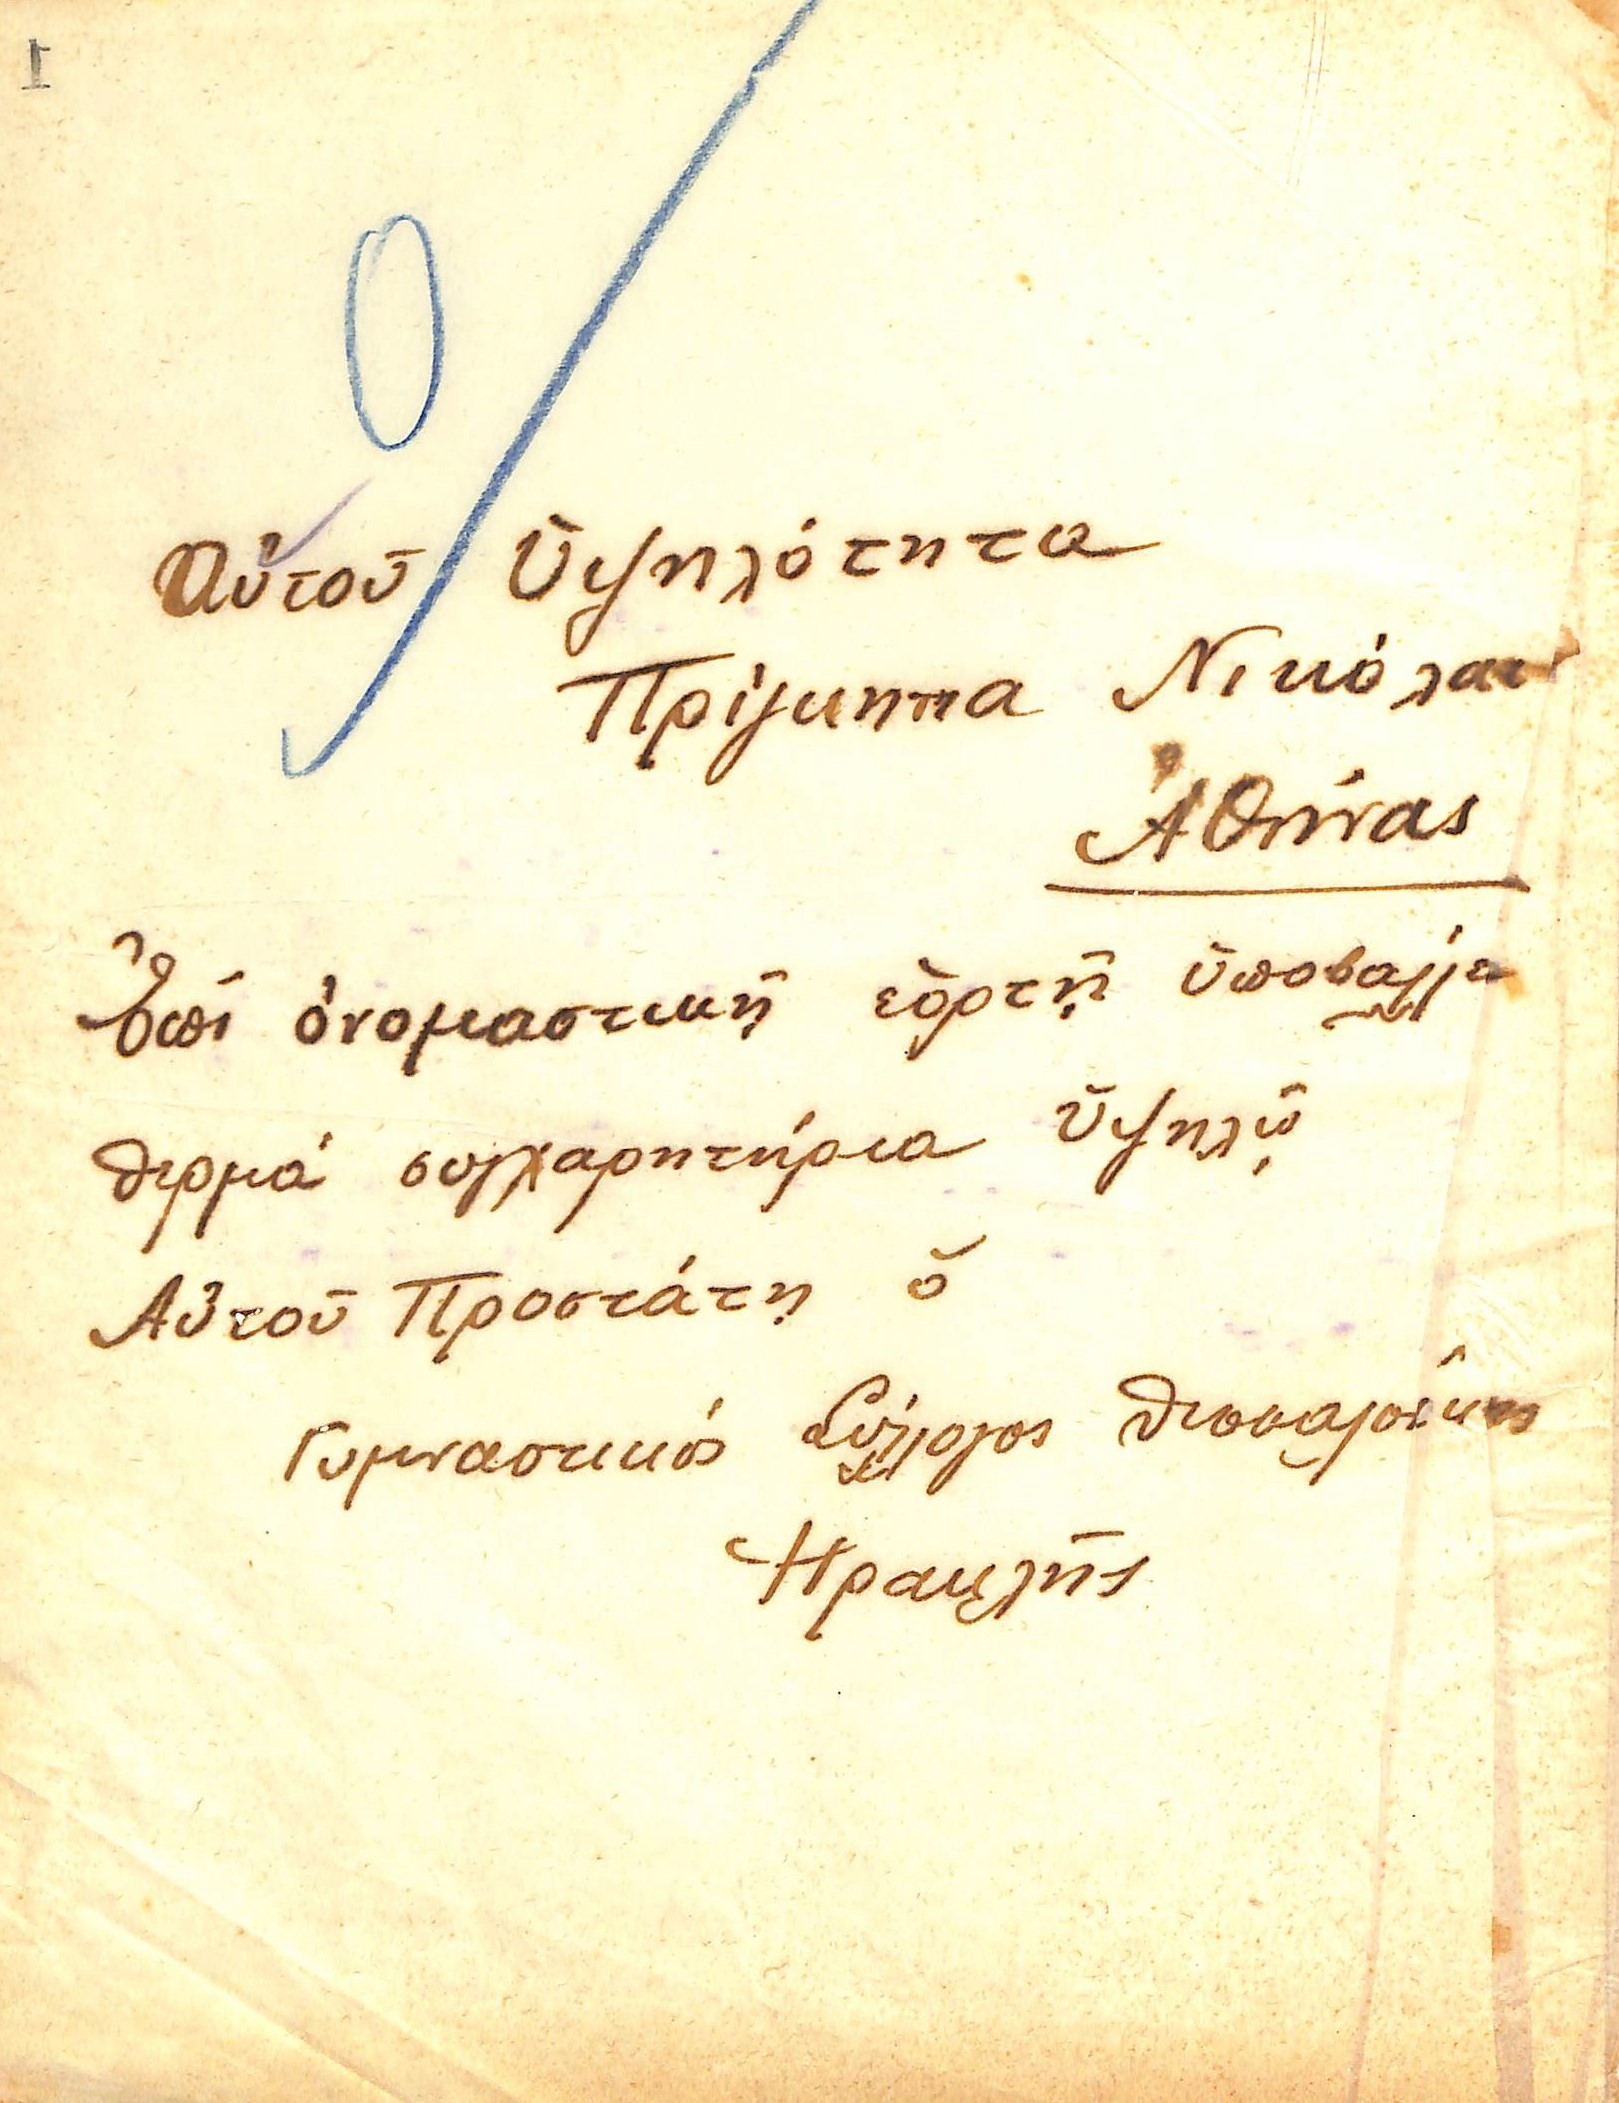 1
Αὐτοῦ Ὑψηλότητα
Πρίγκηπα Νικόλαον
Ἀθήνας
Ἐπί ὀνομαστικῇ ἑορτῇ ὑποβάλλει
θερμά συγχαρητήρια Ὑψηλῷ
Αὐτοῦ Προστάτῃ ὁ
Γυμναστικός Σύλλογος Θεσσαλονίκης
Ηρακλῆς